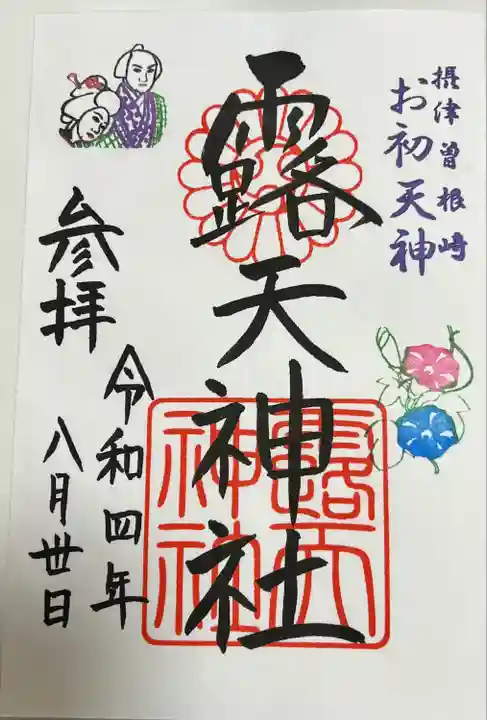 摂津曽根崎
お初天神
露天神社
参拝
令和四年
八月丗日
露天
神社